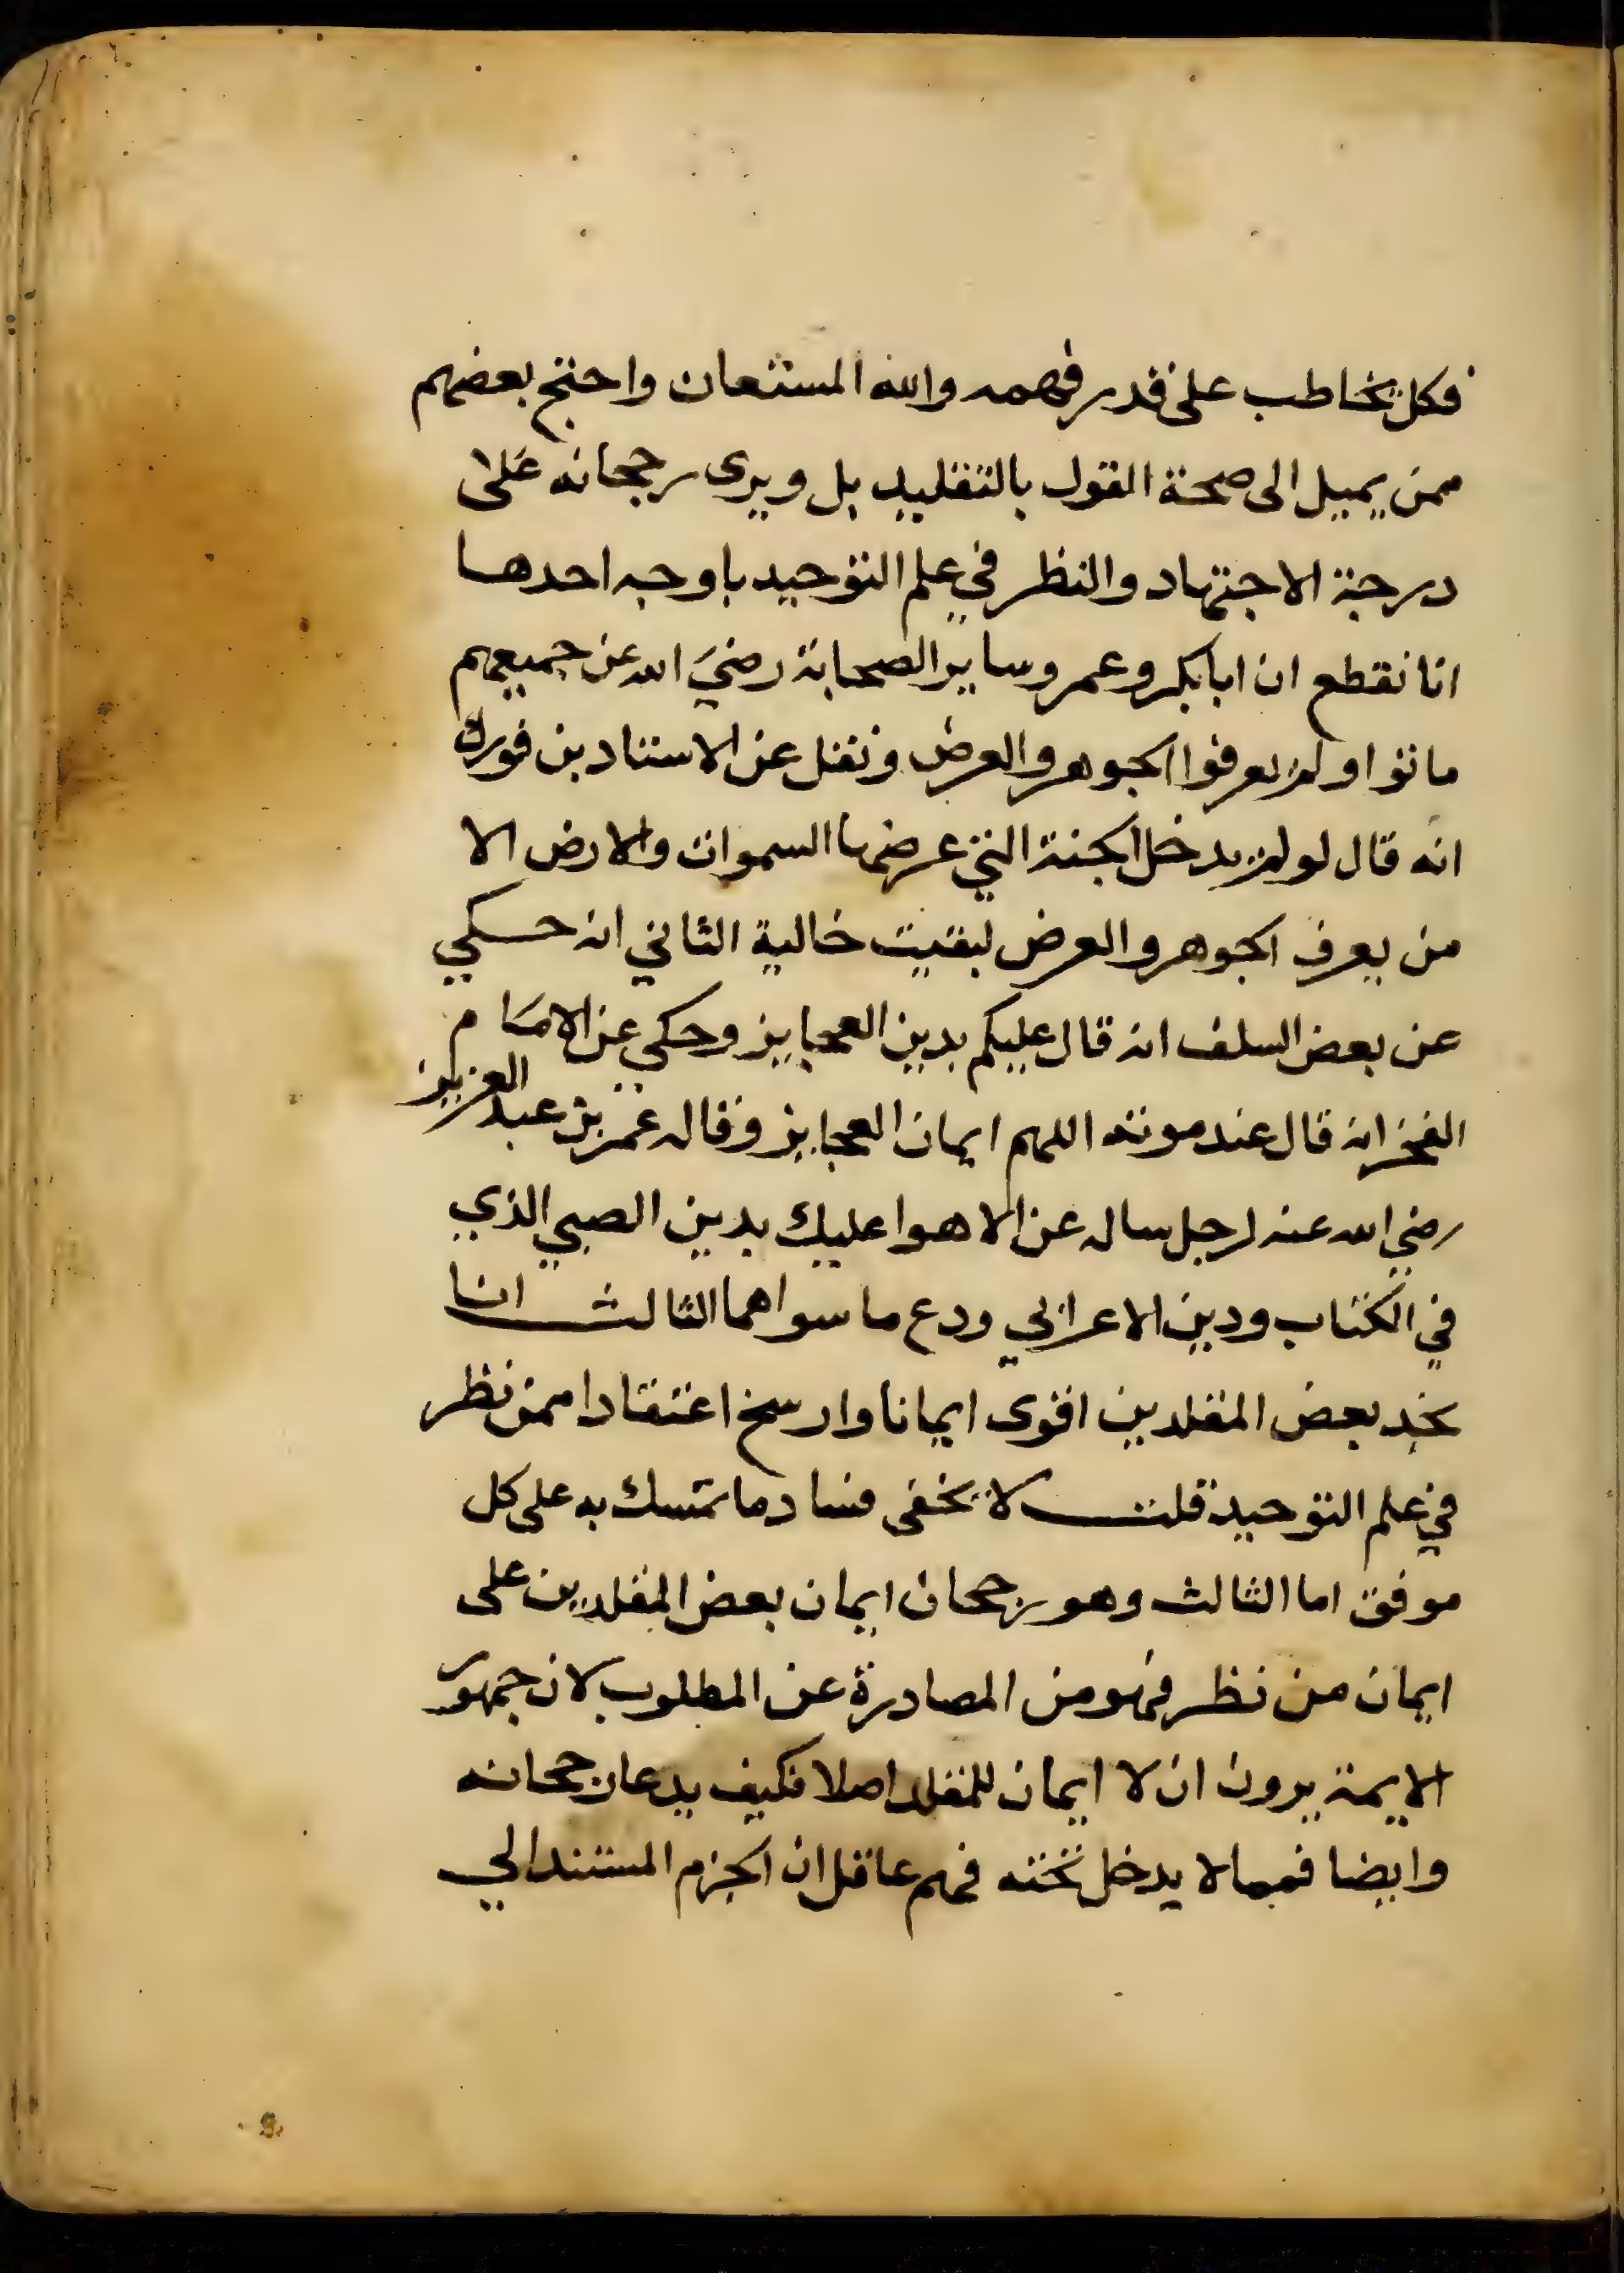 فكل يخاطب على قدر فهمه والله المستعان واحتج بعضهم
ممن يميل الى صحة القول بالتقليد بل ويرى رجحانه على
درجة الاجتهاد والنظر في علم التوحيد باوجه احدها
انا نقطع ان ابا بكر وعمر وساير الصحابة رضي الله عن جميعهم
ماتوا ولم يعرفوا الجوهر والعرض ونقل عن الاستاد بن فورك
انه قال لو لم يدخل الجنة التي عرضها السموات والارض الا
من يعرف الجوهر والعرض لبقيت خالية الثاني انه حكي
عن بعض السلف انه قال عليكم بدين العجايز وحكي عن الامام
الفخر انه قال عند موته اللهم ايمان العجايز وقال عمر بن عبد العزيز
رضي الله عنه لرجل ساله عن الاهوا عليك بدين الصبي الذي
في الكتاب ودين الاعرابي ودع ما سواهما الثالث انا
نجد بعض المقلدين اقوى ايمانا وارسخ اعتقادا ممن نظر
في علم التوحيد قلت لا يخفى فساد ما تمسك به على كل
موفق اما الثالث وهو رجحان ايمان بعض المقلدين على
ايمان من نظر فهو من المصادرة عن المطلوب لان جمهور
الايمة يرون ان لا ايمان للمقلد اصلا فكيف يدعا رجحانه
وايضا فمما لا يدخل تحته فهم عاقل ان الجزم المستند الى